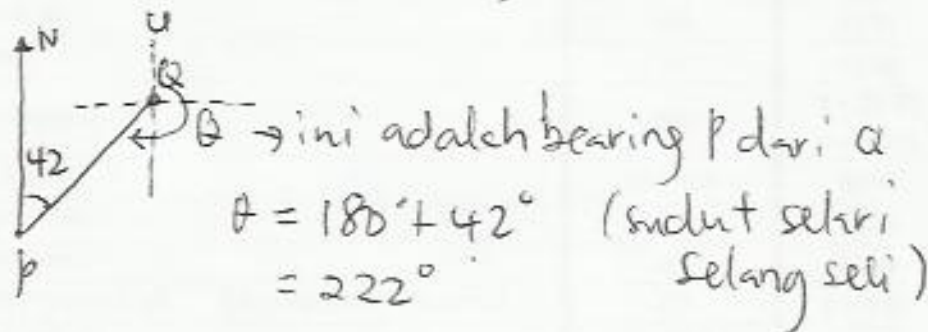 N
U
Q
42
P
θ → ini adalah bearing P dari Q
θ = 180° + 42° (sudut selari
= 222° selang seli)